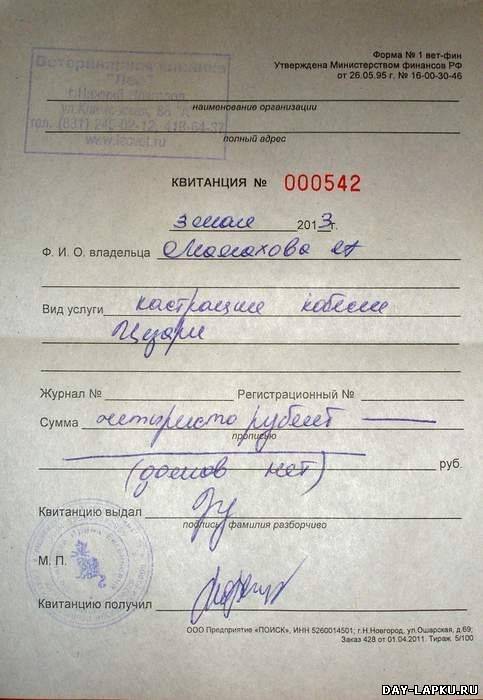 Форма № 1 вет-фин
Утверждена Министерством финансов РФ
от 26.05.95 г, № 16-00-30-46
Ветеринарная клиника
г.Нижний Новгород
наименование организации
тел. (831)
полный адрес
КВИТАНЦИЯ № 000542
3 мая 2013г.
Ф. И. О. владельца Малахова
Вид услуги кастрация кобеля
Цезари
Журнал № Регистрационный №
Сумма четыреста рублей
прописью
(долгов нет) руб.
Квитанцию выдал
подпись фамилия разборчиво
М. П.
Квитанцию получил
ООО Предприятие «ПОИСК», ИНН 5260014501; г.Н.Новгород, ул.Ошарская, д.69;
Заказ 428 от 01.04.2011. Тираж. 5/100
DAY-LAPKU.RU